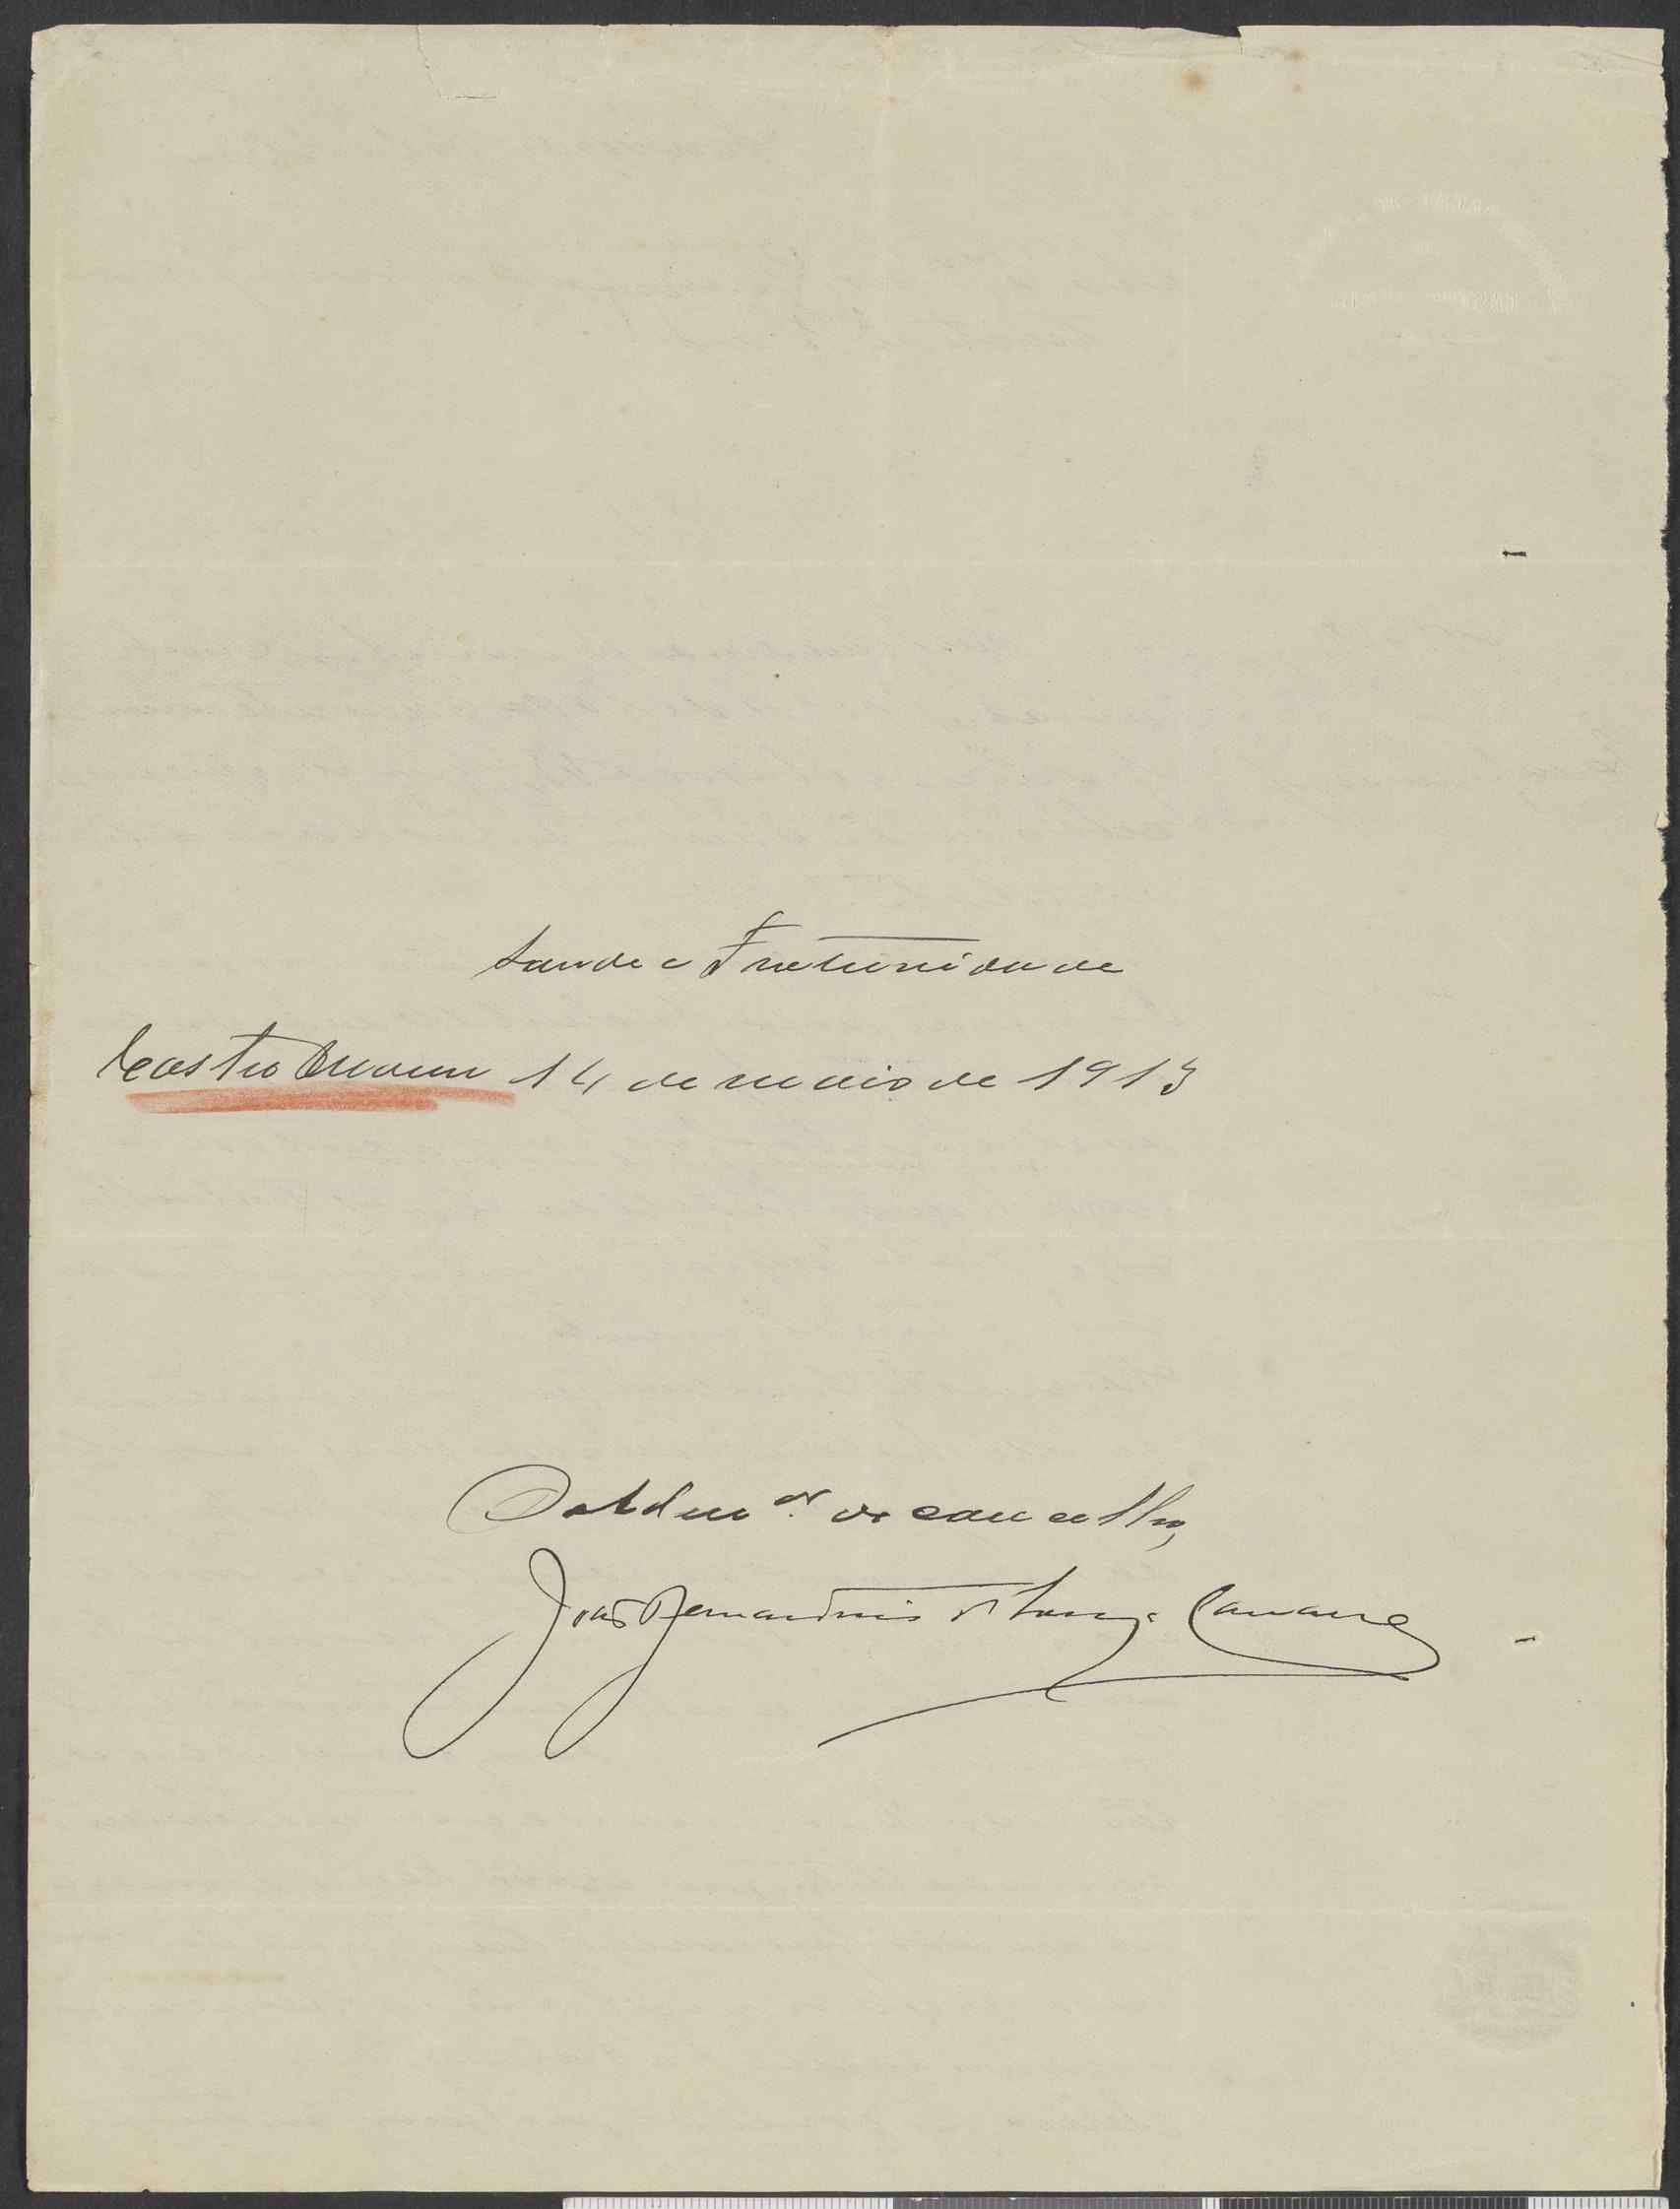 Saude e Fraternidade
Castro Marim 14 de maio de 1913
O Adm.or do concelho,
João Bernardino de Souza Carvalho